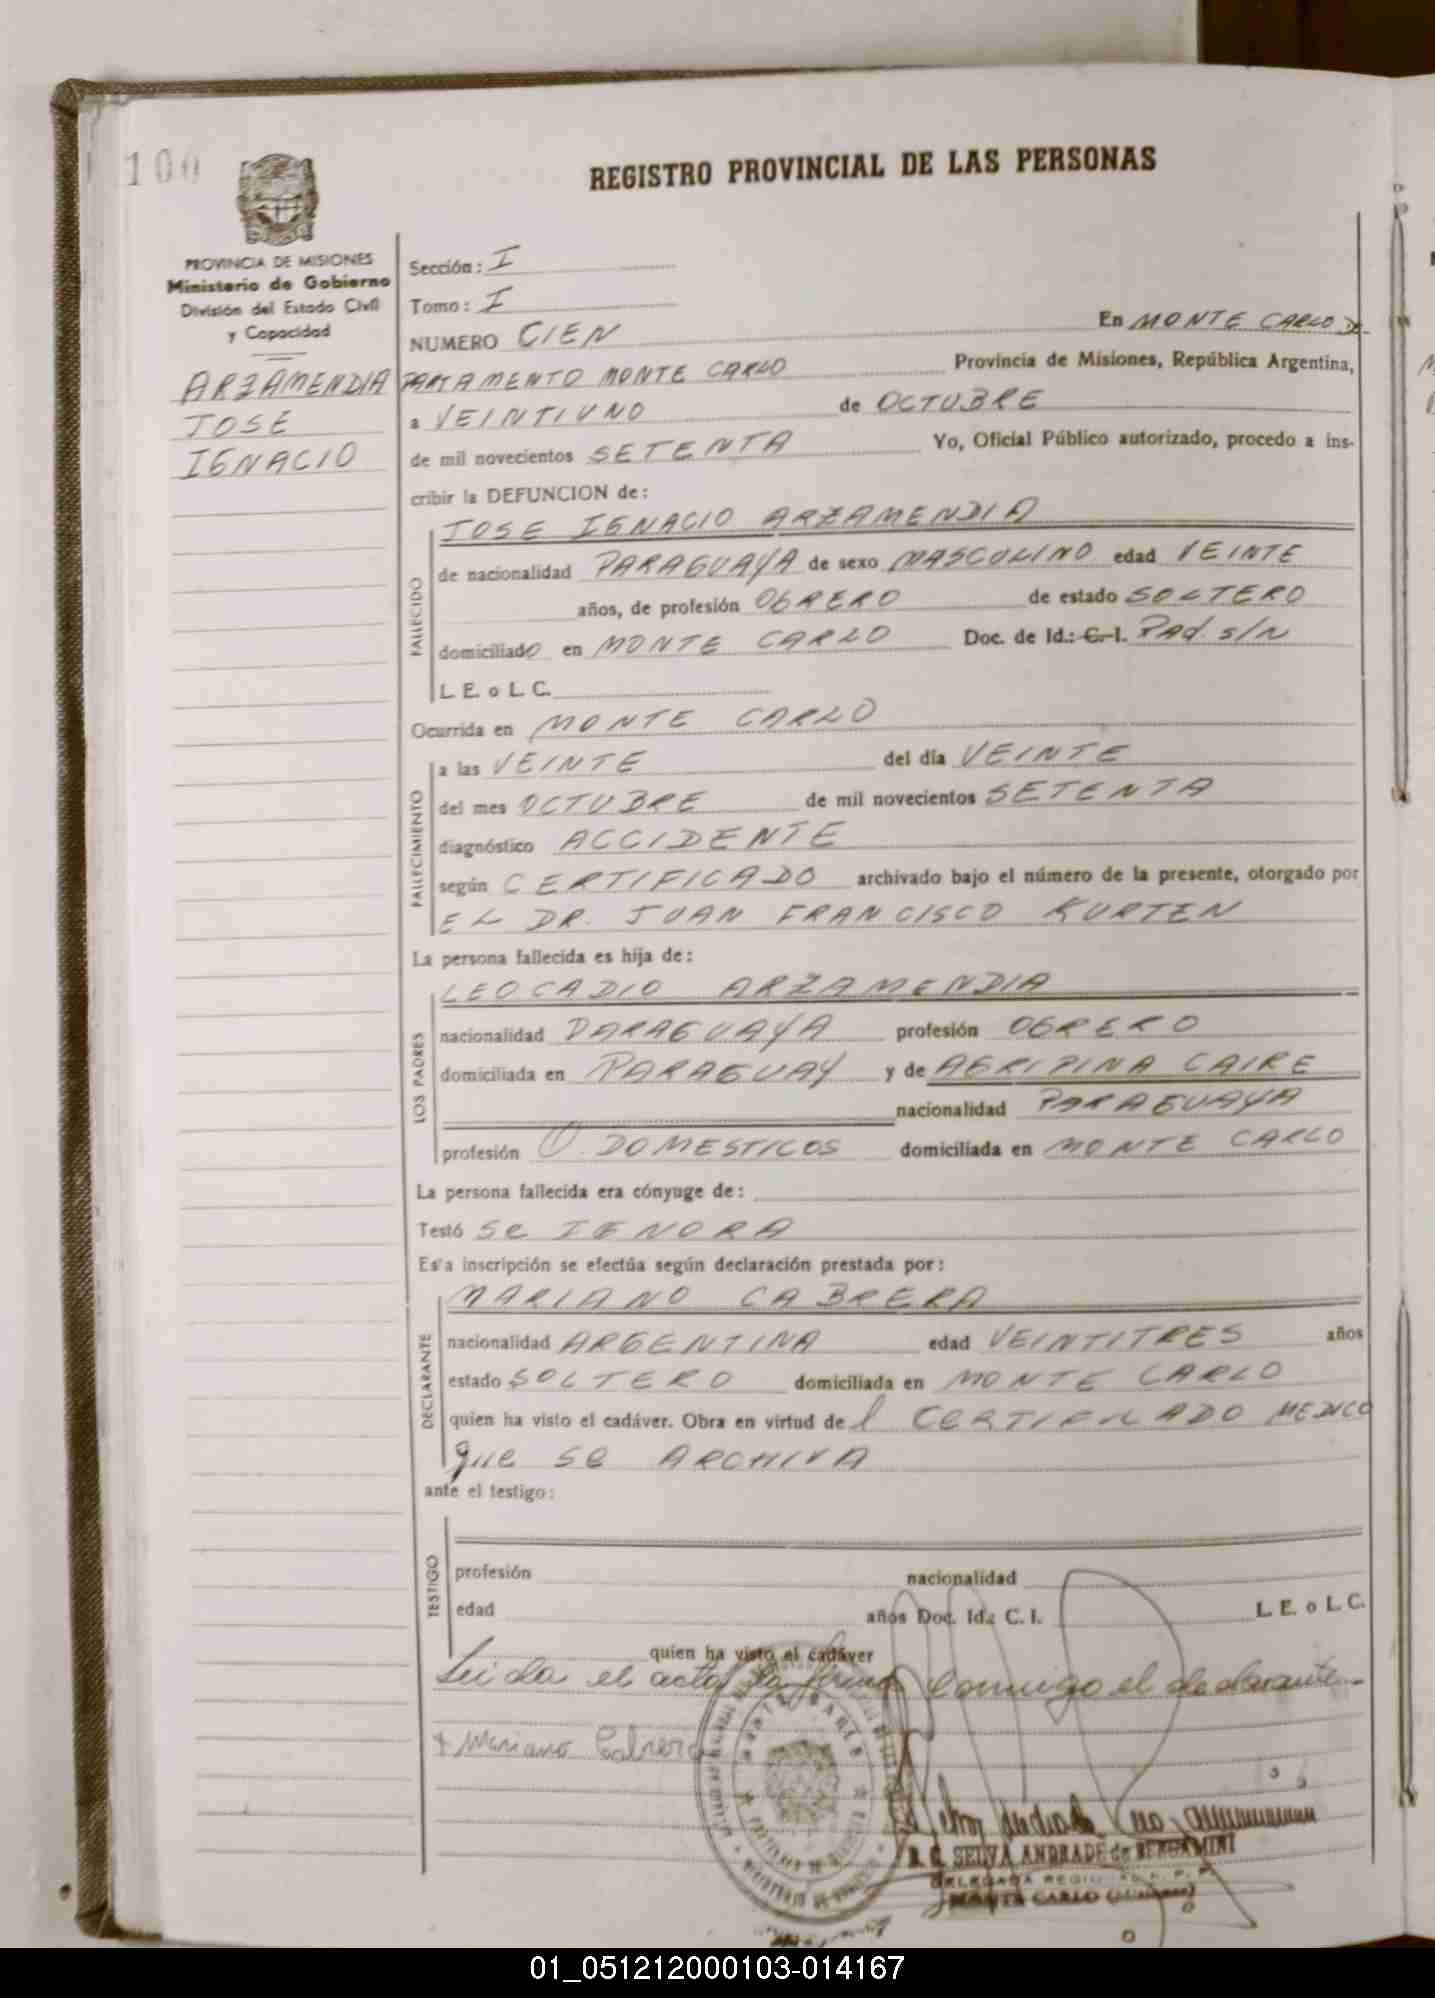 100
REGISTRO PROVINCIAL DE LAS PERSONAS
PROVINCIA DE MISIONES
Ministerio de Gobierno
División del Estado Civil
y Capacidad
ARZAMENDIA
JOSE
IGNACIO
Sección: I
Tomo: I
NUMERO CIEN En MONTE CARLO DE
PARTAMENTO MONTE CARLO Provincia de Misiones, República Argentina,
a VEINTIUNO de OCTUBRE
de mil novecientos SETENTA Yo, Oficial Público autorizado, procedo a ins-
cribir la DEFUNCION de:
FALLECIDO
JOSE IGNACIO ARZAMENDIA
de nacionalidad PARAGUAYA de sexo MASCULINO edad VEINTE
años, de profesión OBRERO de estado SOLTERO
domiciliado en MONTE CARLO Doc. de Id.: C. I. Pad. s/N
L. E. o L. C.
Ocurrida en MONTE CARLO
FALLECIMIENTO
a las VEINTE del día VEINTE
del mes OCTUBRE de mil novecientos SETENTA
diagnóstico ACCIDENTE
según CERTIFICADO archivado bajo el número de la presente, otorgado por
EL DR. JUAN FRANCISCO KURTEN
La persona fallecida es hija de:
LOS PADRES
LEOCADIO ARZAMENDIA
nacionalidad PARAGUAYA profesión OBRERO
domiciliada en PARAGUAY y de AGRIPINA CAIRE
nacionalidad PARAGUAYA
profesión Q. DOMESTICOS domiciliada en MONTE CARLO
La persona fallecida era cónyuge de:
Testó Se IGNORA
Esta inscripción se efectúa según declaración prestada por:
DECLARANTE
MARIANO CABRERA
nacionalidad ARGENTINA edad VEINTITRES años
estado SOLTERO domiciliada en MONTE CARLO
quien ha visto el cadáver. Obra en virtud de l CERTIFICADO MEDICO
que se ARCHIVA
ante el testigo:
TESTIGO
profesión nacionalidad
edad años Doc. Id.: C. I. L. E. o L. C.
quien ha visto el cadáver
Leida el acta la firma conmigo el declarante-
Mariano Cabrera
SELVA ANDRADE de BERGAMINI
DELEGADA
MONTE CARLO (Misiones)
01_051212000103-014167